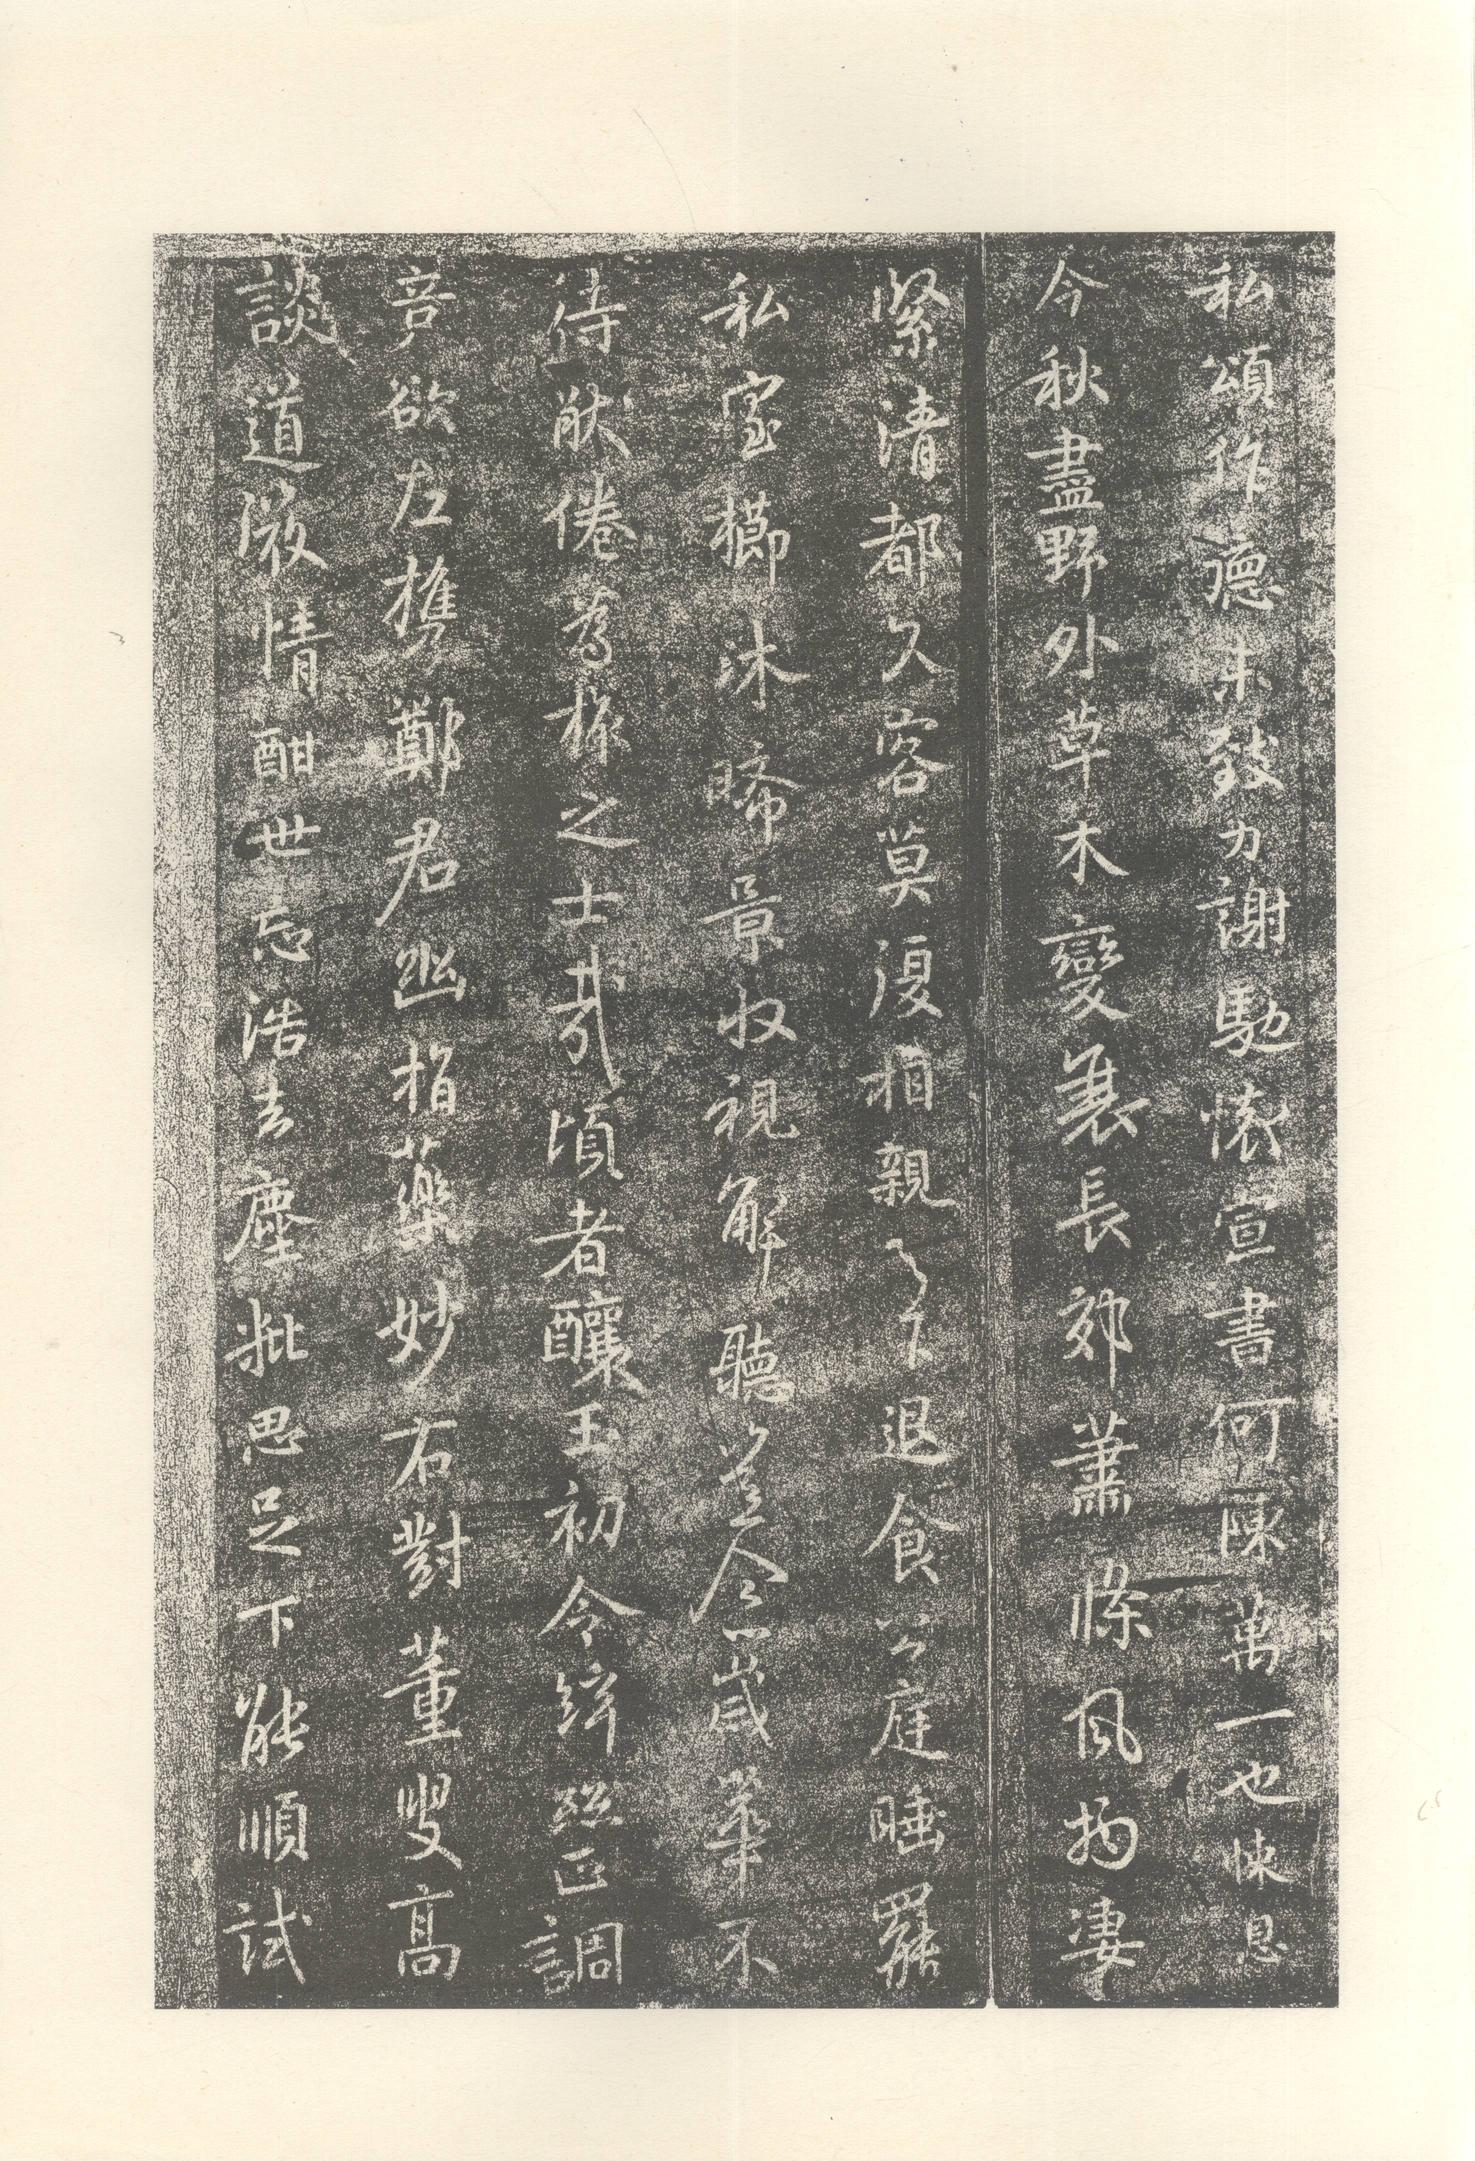 私頌作德未致力謝馳懷宣書何陳萬一也悚息
今秋盡野外草木變衰長郊蕭條風物凄
緊清都久客莫復相親之下退食公庭睡羅
私室櫛沐晞景收視解聽豈令歲華不
待耽倦寄旅之士哉頃者釀玉初令絃正調
音欲左携鄭君幽指藥妙右對董叟高
談道淑情酣世忘浩去塵批思足下能順試